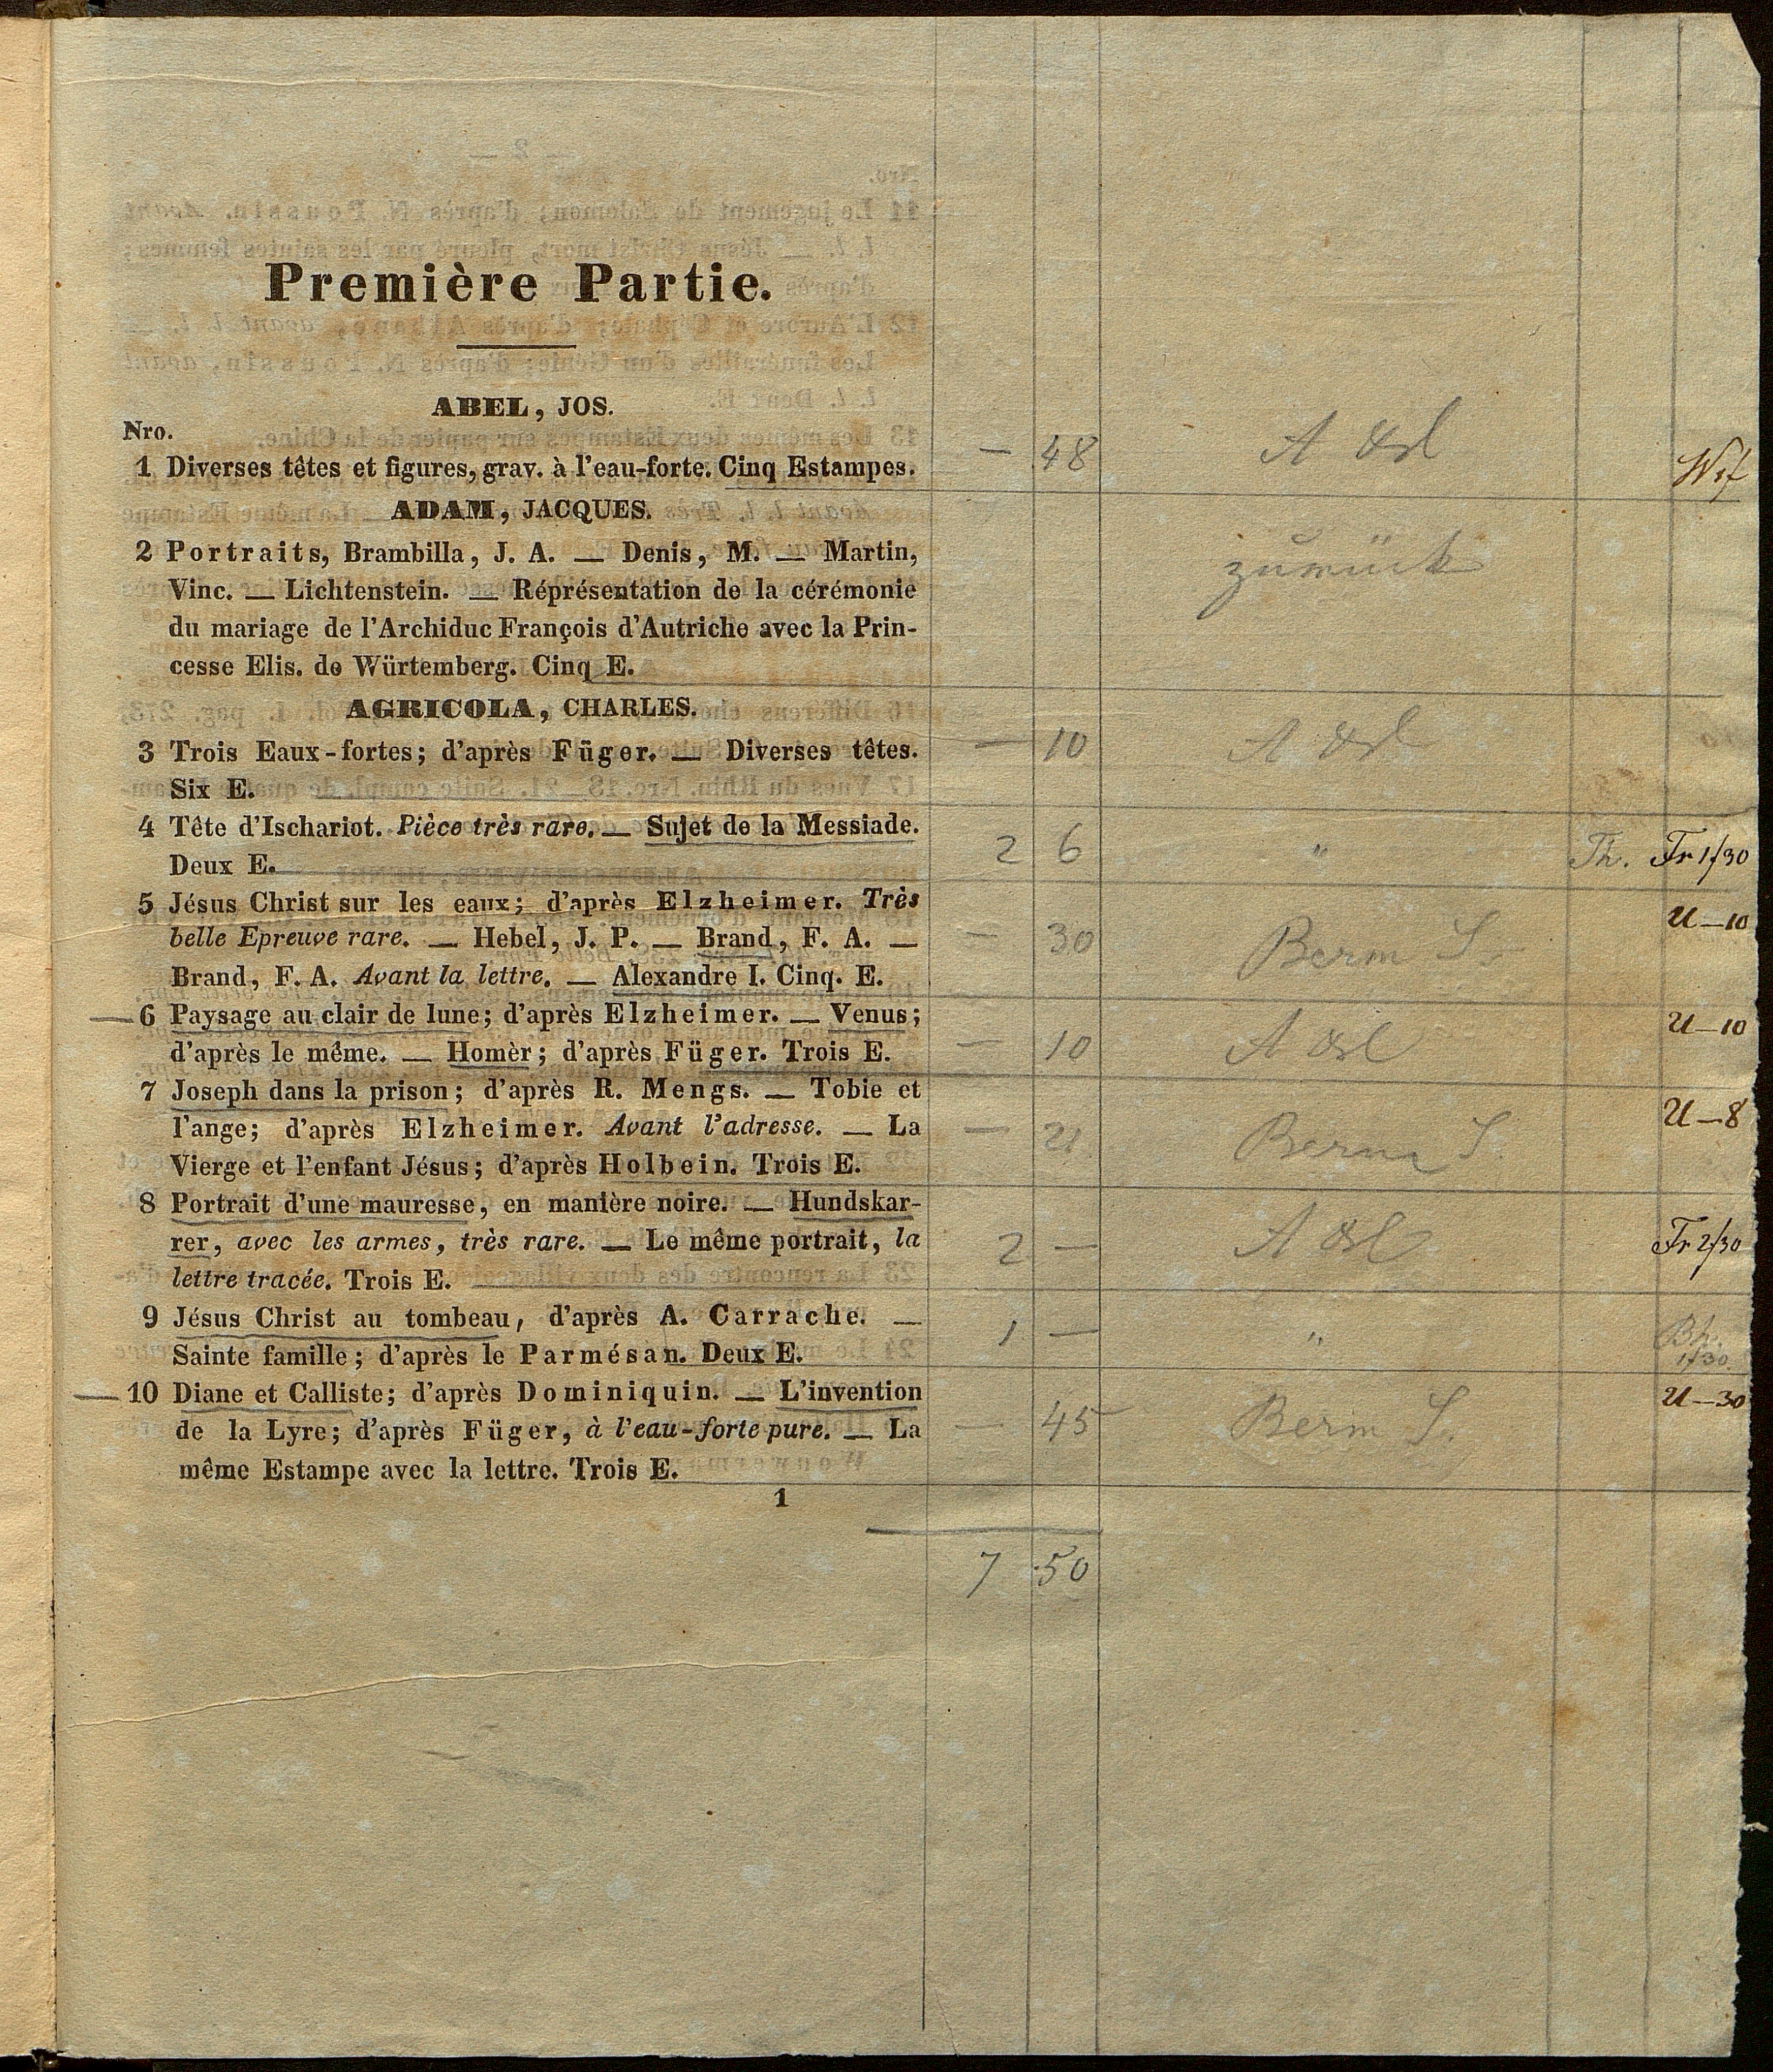 Première Partie.
ABEL, JOS.
Nro.
1 Diverses têtes et figures, grav. à l'eau-forte. Cinq Estampes. — 48
ADAM, JACQUES.
2 Portraits, Brambilla, J. A. — Denis, M. — Martin,
Vinc. — Lichtenstein. — Réprésentation de la cérémonie zurück
du mariage de l'Archiduc François d'Autriche avec la Prin-
cesse Elis. de Würtemberg. Cinq E.
AGRICOLA, CHARLES.
3 Trois Eaux-fortes; d'après Füger. — Diverses têtes. — 10
Six E.
4 Tête d'Ischariot. Pièce très rare. — Sujet de la Messiade. 2 6 " Th. Fr 1/30
Deux E.
5 Jésus Christ sur les eaux; d'après Elzheimer. Très U—10
belle Epreuve rare. — Hebel, J. P. — Brand, F. A. — — 30 Berm S.
Brand, F. A. Avant la lettre. — Alexandre I. Cinq. E.
—6 Paysage au clair de lune; d'après Elzheimer. — Venus; U—10
d'après le même. — Homèr; d'après Füger. Trois E. — 10
7 Joseph dans la prison; d'après R. Mengs. — Tobie et
l'ange; d'après Elzheimer. Avant l'adresse. — La — 21 Berm S. U—8
Vierge et l'enfant Jésus; d'après Holbein. Trois E.
8 Portrait d'une mauresse, en manière noire. — Hundskar-
rer, avec les armes, très rare. — Le même portrait, la 2 — Fr 2/30
lettre tracée. Trois E.
9 Jésus Christ au tombeau, d'après A. Carrache. — 1 — " Bh.
Sainte famille; d'après le Parmésan. Deux E. 1/30
—10 Diane et Calliste; d'après Dominiquin. — L'invention U—30
de la Lyre; d'après Füger, à l'eau-forte pure. — La — 45 Berm S.
même Estampe avec la lettre. Trois E.
1
7 50